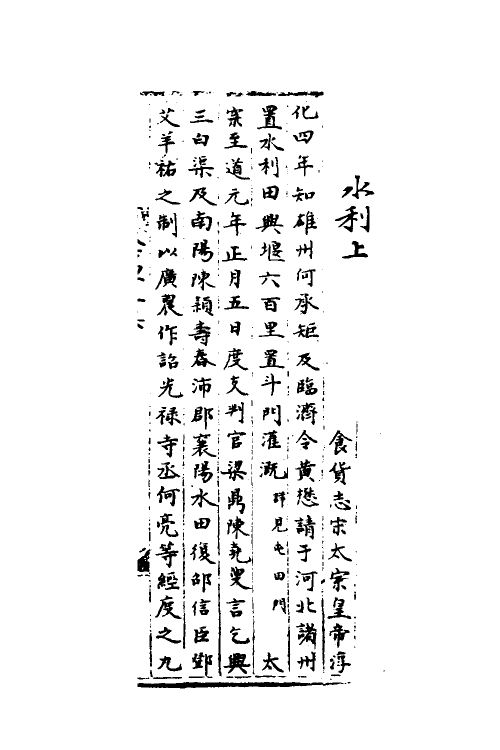 水利上
食貨志宋太宗皇帝淳
化四年知雄州何承矩及臨濟令黃懋請于河北諸州
置水利田興堰六百里置斗門灌溉詳見屯田門　太
宗至道元年正月五日度支判官梁鼎陳堯叟言乞興
三白渠及南陽陳潁壽春沛郡襄陽水田復邵信臣鄧
艾羊祜之制以廣農作詔光祿寺丞何亮等經度之九